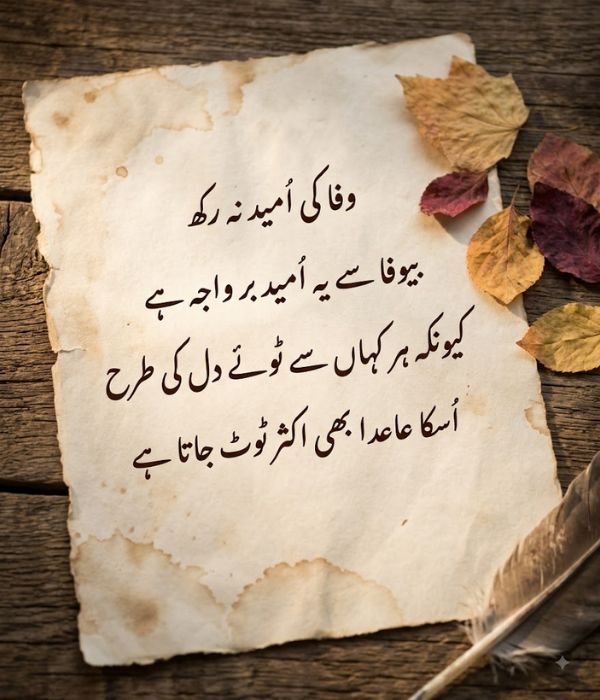 وفا کی اُمید نہ رکھ
بیوفا سے یہ اُمید بر واجہ ہے
کیونکہ ہر کہاں سے ٹوئے دل کی طرح
اُسکا عاعدا بھی اکثر ٹوٹ جاتا ہے